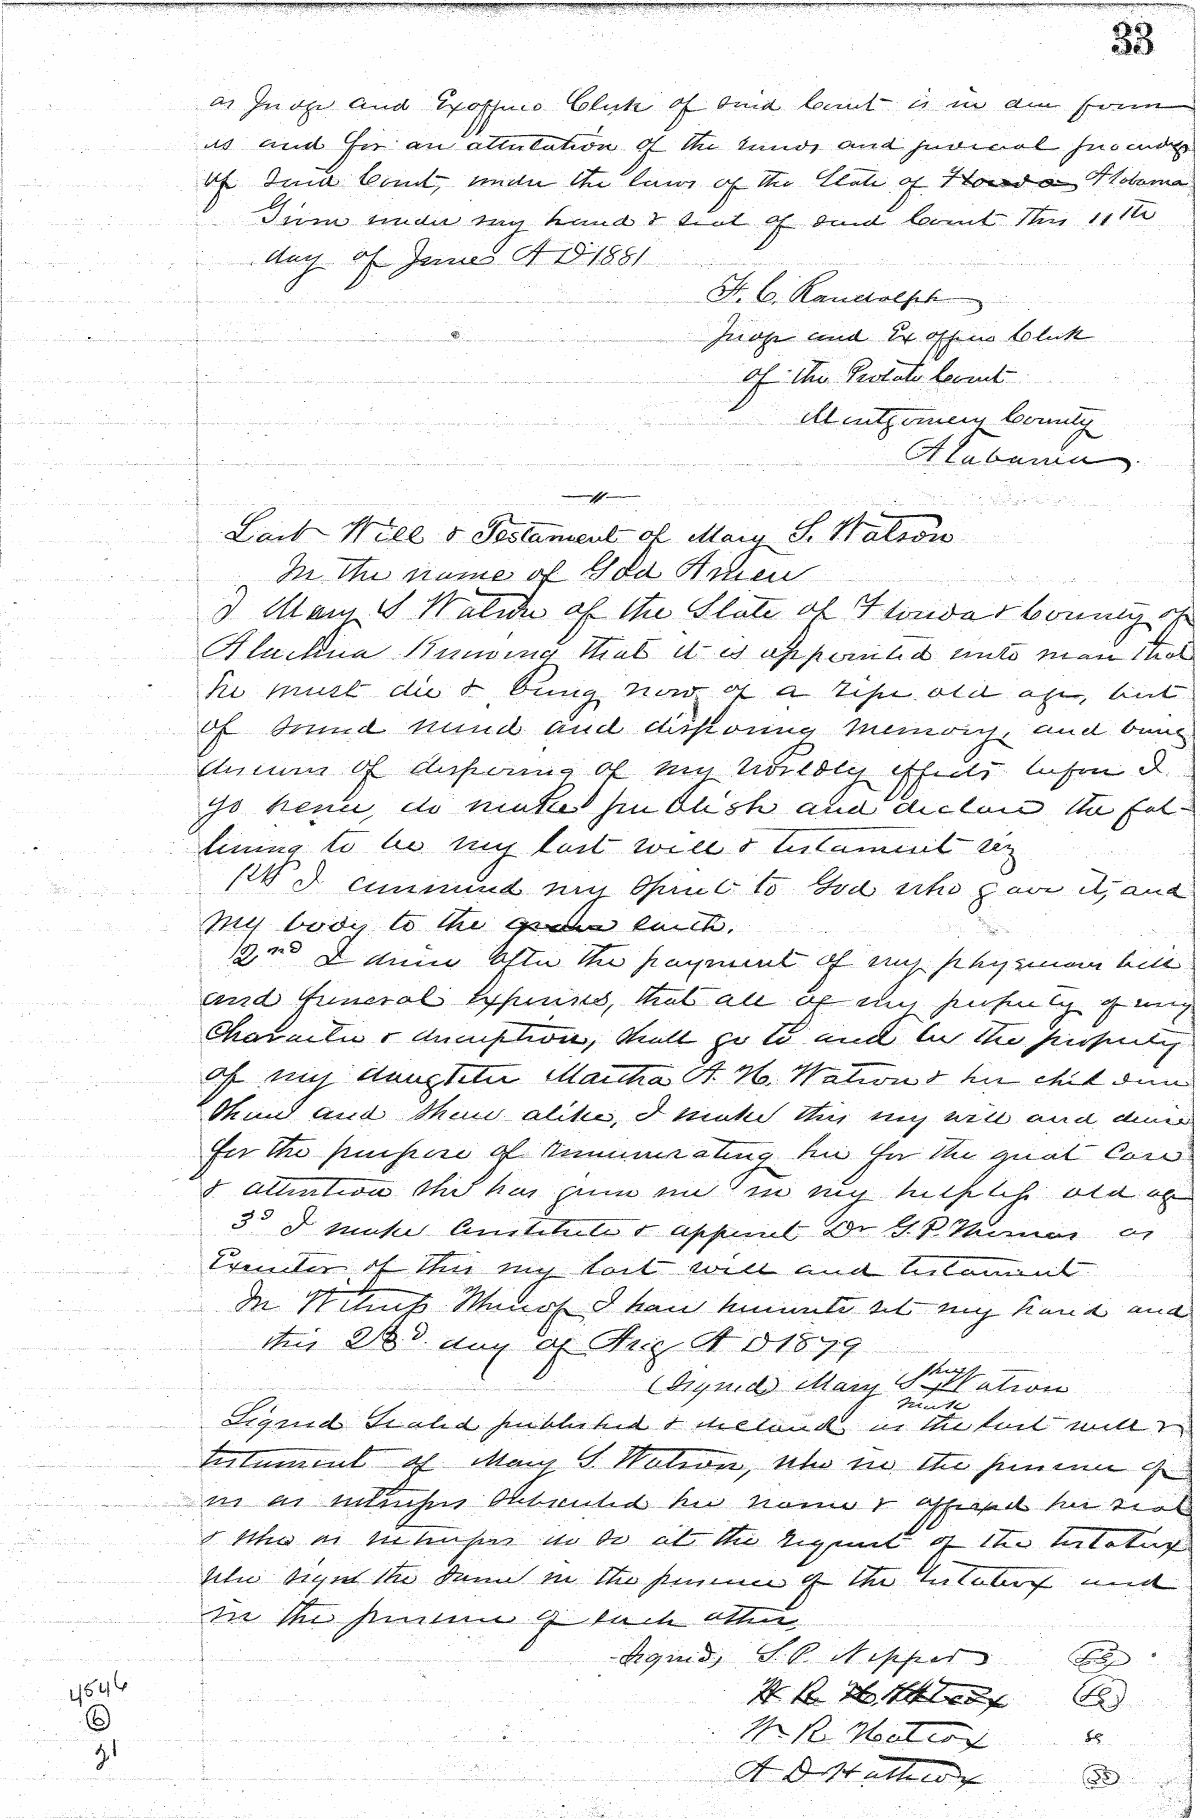 33
as Judge and Exofficio Clerk of said Court is in due form
as and for an attestation of the records and judicial proceedings
of said Court, under the laws of the State of Alabama
Given under my hand & seal of said Court this 11th
day of June A D 1881
F. C. Randolph
Judge and Ex officio Clerk
of the Probate Court
Montgomery County
Alabama
Last Will & Testament of Mary S. Watson
In the name of God Amen
I Mary S Watson of the State of Florida & County of
Alachua Knowing that it is appointed unto man that
he must die & being now of a ripe old age, but
of sound mind and disposing memory, and being
desirous of disposing of my worldly effects before I
go hence, do make publish and declare the fol-
lowing to be my last will & testament viz
1st I commend my Spirit to God who gave it, and
my body to the grave earth.
2nd I desire after the payment of my physicians bill
and funeral expenses, that all of my property of every
Character & description, shall go to and be the property
of my daughter Martha A. H. Watson & her children
Share and share alike, I make this my will and desire
for the purpose of remunerating her for the great Care
& attention she has given me in my helpless old age
3d I make Constitute & appoint Dr G. P. Thomas as
Executor of this my last will and testament
In Witness Whereof I have hereunto set my hand and
this 23d day of Aug A D 1879
(Signed) Mary S her X mark Watson
Signed Sealed published & declared as the last will &
testament of Mary S. Watson, who in the presence of
us as witnesses Subscribed her name & affixed her seal
& who as witnesses do so at the request of the testatrix
who signs the same in the presence of the testatrix and
in the presence of each other,
Signed, S. P.
W. R.
A D
4546
6
31